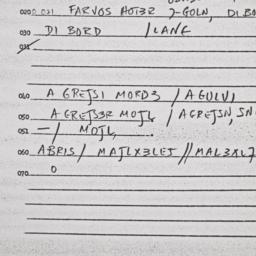 020 021 FARVOS HOT3R J-GOLN, DI BO
030 DI BORD / LANF
031
040 A GREJSI MORD3 / A GULVI
050 A GREJS3R MOTL / AGREJSN, SN
051 — / MOTL, ......
060 ABRIS / MAJLX3LEJ // MAL3XL7
070 0